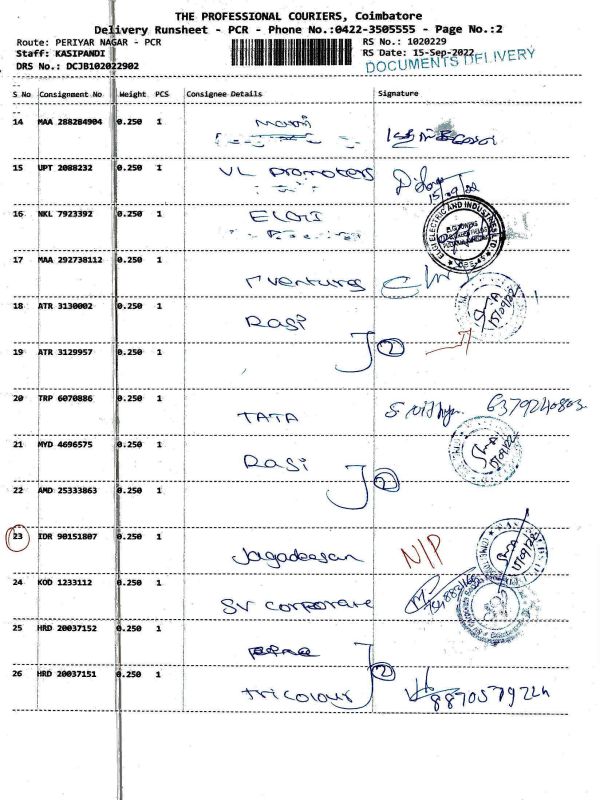 THE PROFESSIONAL COURIERS, Coimbatore
Delivery Runsheet - PCR - Phone No.:0422-3505555 - Page No.:2
Route: PERIYAR NAGAR - PCR
RS No.: 1020229
Staff: KASIPANDI
RS Date: 15-Sep-2022
DRS No.: DCJB102022902
DOCUMENTS DELIVERY
S No Consignment No Weight PCS Consignee Details Signature
14 MAA 288284904 0.250 1
15 UPT 2088232 0.250 1 VL promoters 15/09/22
16 NKL 7923392 0.250 1 ELGI
ELGI ELECTRIC AND INDUSTRIES LTD
17 MAA 292738112 0.250 1 r ventures
18 ATR 3130002 0.250 1 RASI 15/09/22
19 ATR 3129957 0.250 1 2
20 TRP 6070886 0.250 1 TATA 6379240803
21 MYD 4696575 0.250 1 RASI
22 AMD 25333863 0.250 1 2
23 IDR 90151807 0.250 1 Jagadeesan N/P
24 KOD 1233112 0.250 1 SV corporate
25 HRD 20037152 0.250 1
26 HRD 20037151 0.250 1 tricolour 2